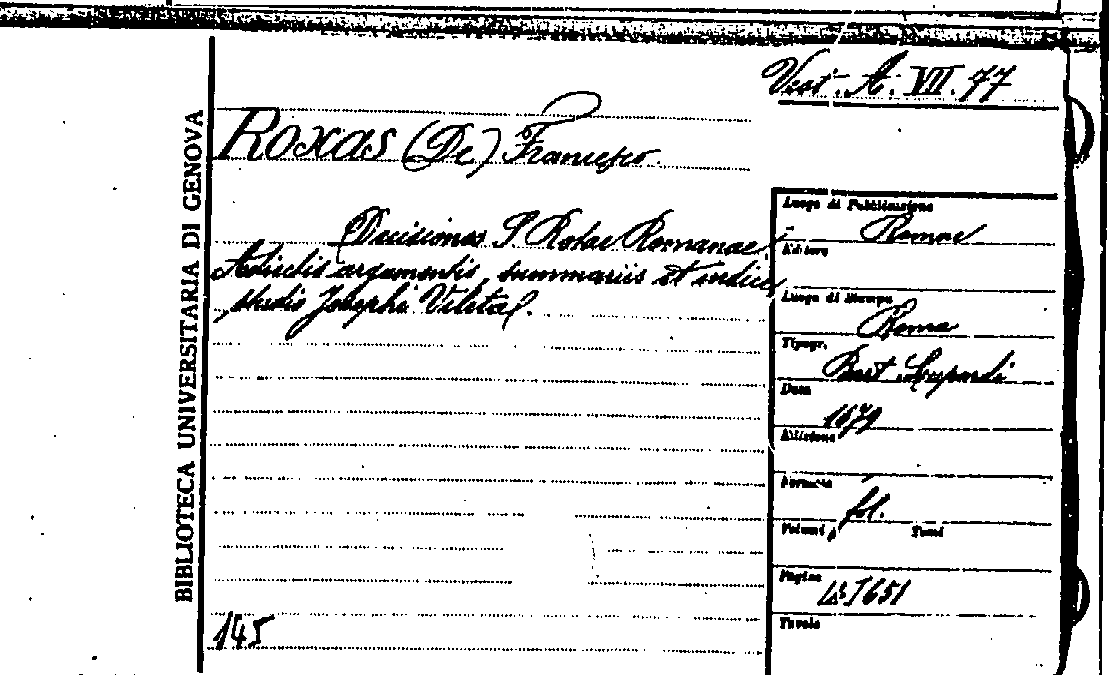 Vest. A. VII. 77
BIBLIOTECA UNIVERSITARIA DI GENOVA
ROXAS (De) Francesco.
Decisiones S. Rotae Romanae
Adiectis argumentis, summariis et indice
studio Josephi
Luogo di Pubblicazione
Romae
Editore
Luogo di Stampa
Roma
Tipogr.
Data
1679
Edizione
Formato
fol.
Volumi Tomi
Pagine
651
Tavole
145